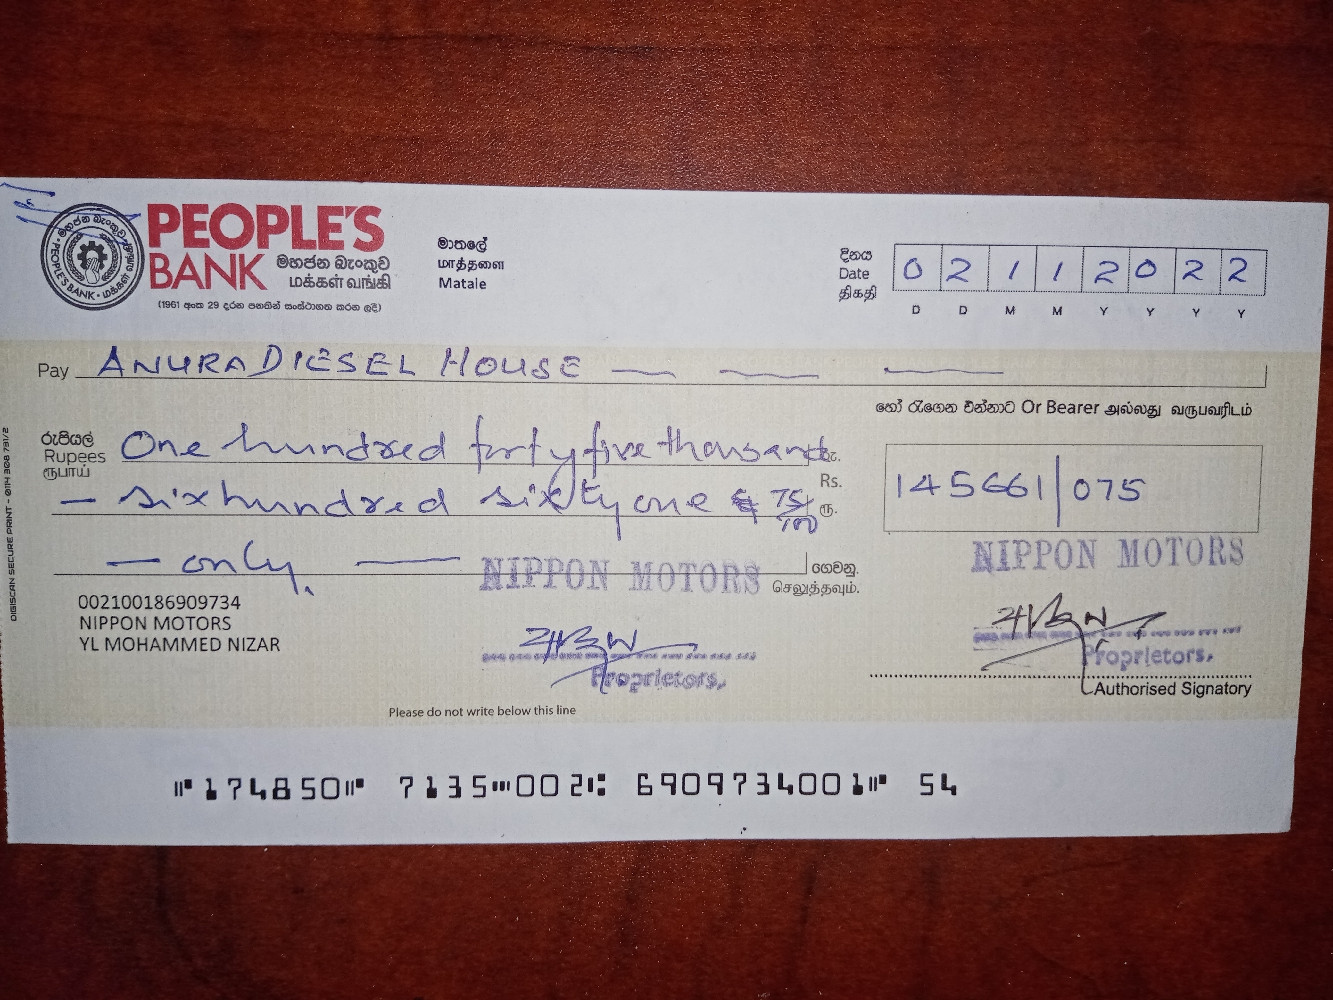 PEOPLE'S
BANK මහජන බැංකුව
மக்கள் வங்கி
(1961 අංක 29 දරන පනතින් සංස්ථාගත කරන ලදී)
මහජන බැංකුව
மக்கள் வங்கி
PEOPLE'S BANK
මාතලේ
மாத்தளை
Matale
දිනය
Date
திகதி
0 2 1 1 2 0 2 2
D D M M Y Y Y Y
Pay ANURA DIESEL HOUSE
හෝ රැගෙන එන්නාට Or Bearer அல்லது வருபவரிடம்
රුපියල්
Rupees
ரூபாய்
One hundred forty five thousand රු.
- six hundred sixty one & 75/100 Rs. ரூ.
- only.
145661 | 075
ගෙවනු.
செலுத்தவும்.
NIPPON MOTORS
NIPPON MOTORS
002100186909734
NIPPON MOTORS
YL MOHAMMED NIZAR
Proprietors,
Proprietors,
Authorised Signatory
Please do not write below this line
⑈174850⑈ 7135⑉002⑆ 6909734001⑈ 54
DIGISCAN SECURE PRINT - 011 308 731/2